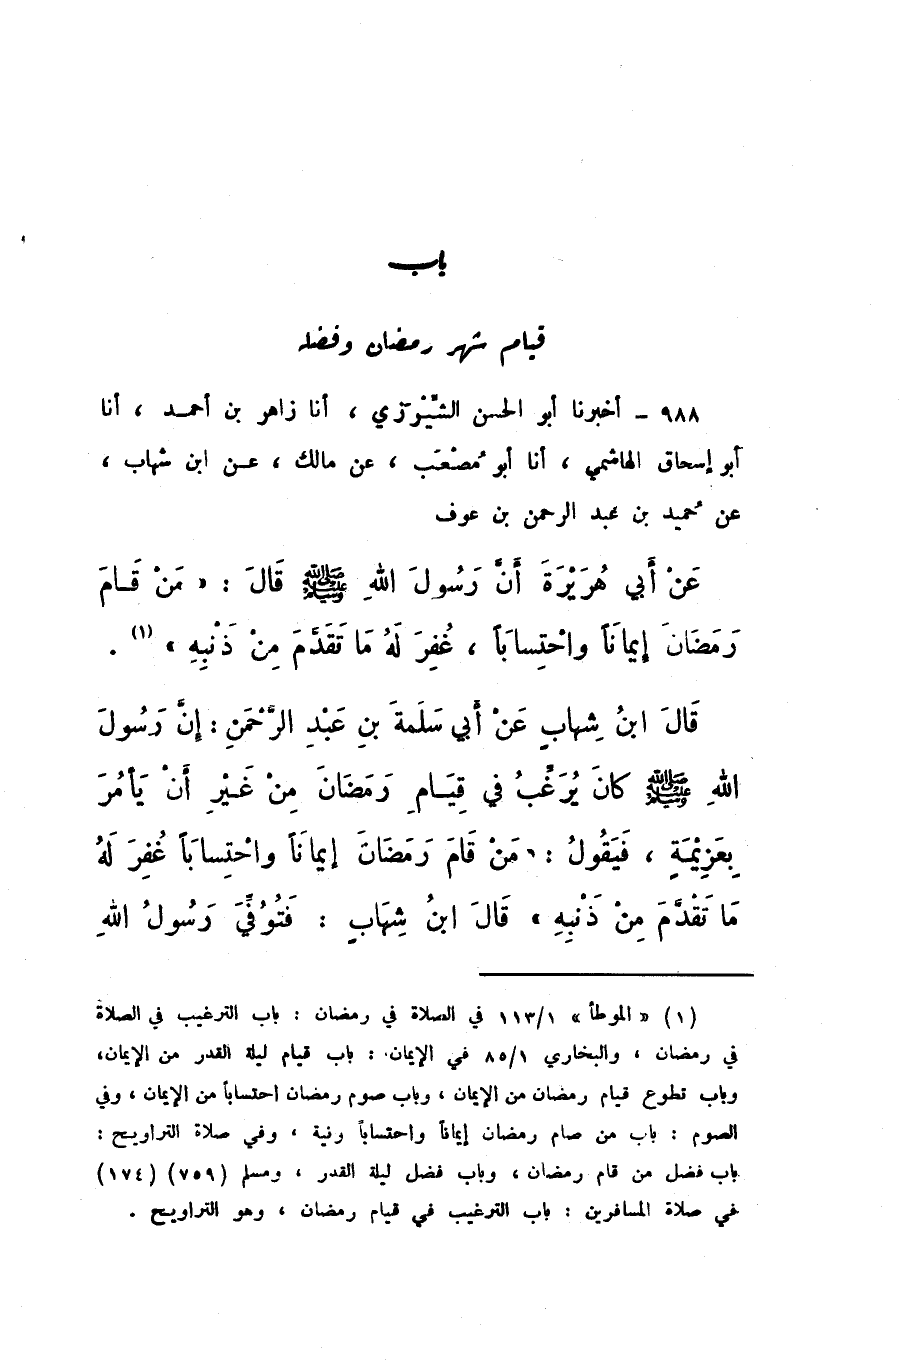 باب
قيام شهر رمضان وفضله
٩٨٨ – أخبرنا أبو الحسن الشِّيْرَزي ، أنا زاهر بن أحمد ، أنا
أبو إسحاق الهاشمي ، أنا أبو مُصْعَب ، عن مالك ، عن ابن شهاب ،
عن حُميد بن عبد الرحمن بن عوف
عَنْ أَبي هُرَيْرَةَ أَنَّ رَسُولَ اللهِ ﷺ قَالَ : « مَنْ قَامَ
رَمَضَانَ إيمانَاً واحْتِسابَاً ، غُفِرَ لَهُ مَا تَقَدَّمَ مِنْ ذَنْبِهِ » (١) .
قَالَ ابنُ شِهابٍ عَنْ أَبي سَلَمةَ بنِ عَبْدِ الرَّحْمَنِ : إنَّ رَسُولَ
اللهِ ﷺ كانَ يُرَغِّبُ في قِيَامِ رَمَضَانَ مِنْ غَيْرِ أَنْ يَأمُرَ
بِعَزِيْمَةٍ ، فَيَقُولُ : « مَنْ قَامَ رَمَضَانَ إيمانَاً واحْتِسابَاً غُفِرَ لَهُ
مَا تَقَدَّمَ مِنْ ذَنْبِهِ » قَالَ ابنُ شِهَابٍ : فَتُوُفِّيَ رَسُولُ اللهِ
(١) « الموطأ » ١١٣/١ في الصلاة في رمضان : باب الترغيب في الصلاة
في رمضان ، والبخاري ٨٥/١ في الإيمان : باب قيام ليلة القدر من الإيمان،
وباب تطوع قيام رمضان من الإيمان ، وباب صوم رمضان احتساباً من الإيمان ، وفي
الصوم : باب من صام رمضان إيماناً واحتساباً ونية ، وفي صلاة التراويح :
باب فضل من قام رمضان ، وباب فضل ليلة القدر ، ومسلم (٧٥٩) (١٧٤)
في صلاة المسافرين : باب الترغيب في قيام رمضان ، وهو التراويح .